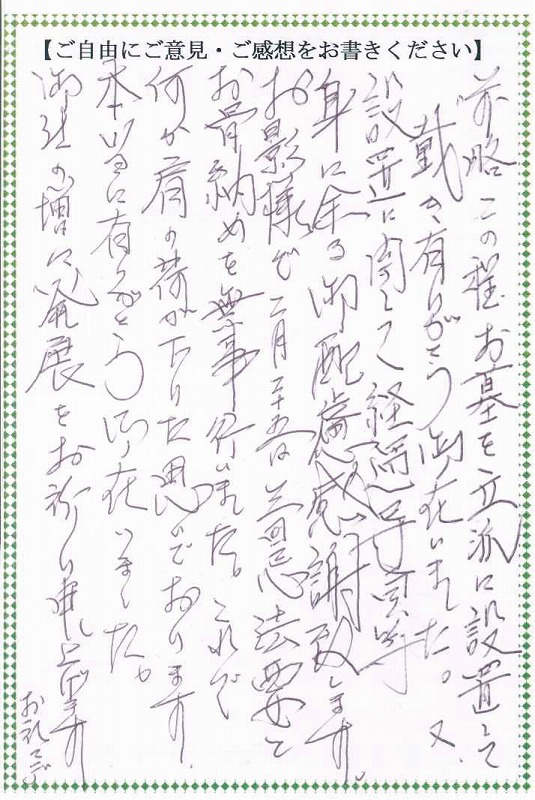 【ご自由にご意見・ご感想をお書きください】
前略 この程お墓を立派に設置して
戴き有りがとう御在いました。又
設置に関して経過寺
身に余る御配慮感謝致します。
お影様で二月二十五日 忌法要と
お骨納めを無事行いました。これで
何か肩の荷が下りた思いでおります。
本当に有りがとう御在いました。
御社の増々発展をお祈り申し上げます
お礼まで